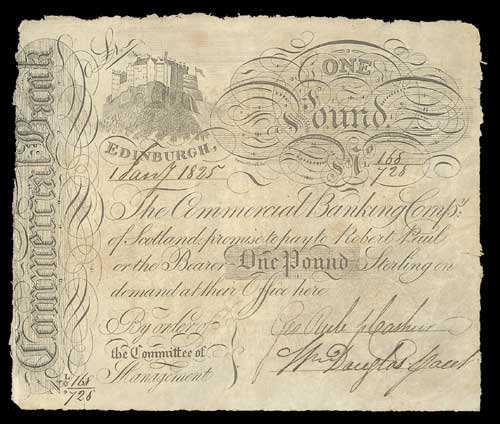 Commercial Bank
ONE
Pound.
EDINBURGH,
No. 168/728
1 Jany 1825
The Commercial Banking Compy:
of Scotland, promise to pay to Robert Paul
or the Bearer One Pound Sterling on
demand at their Office here
By order of
the Committee of
Management
Cashier
Wm Douglas Accnt
No 168/728